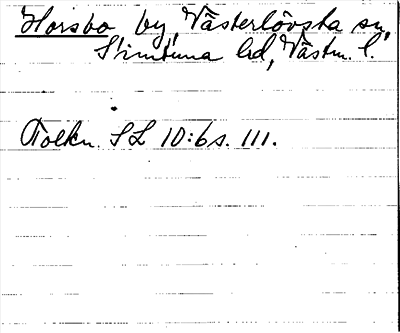 Horsbo by, Västerlövsta sn,
Simtuna hd, Västm. l.
Tolkn. SL 10:6 s. 111.